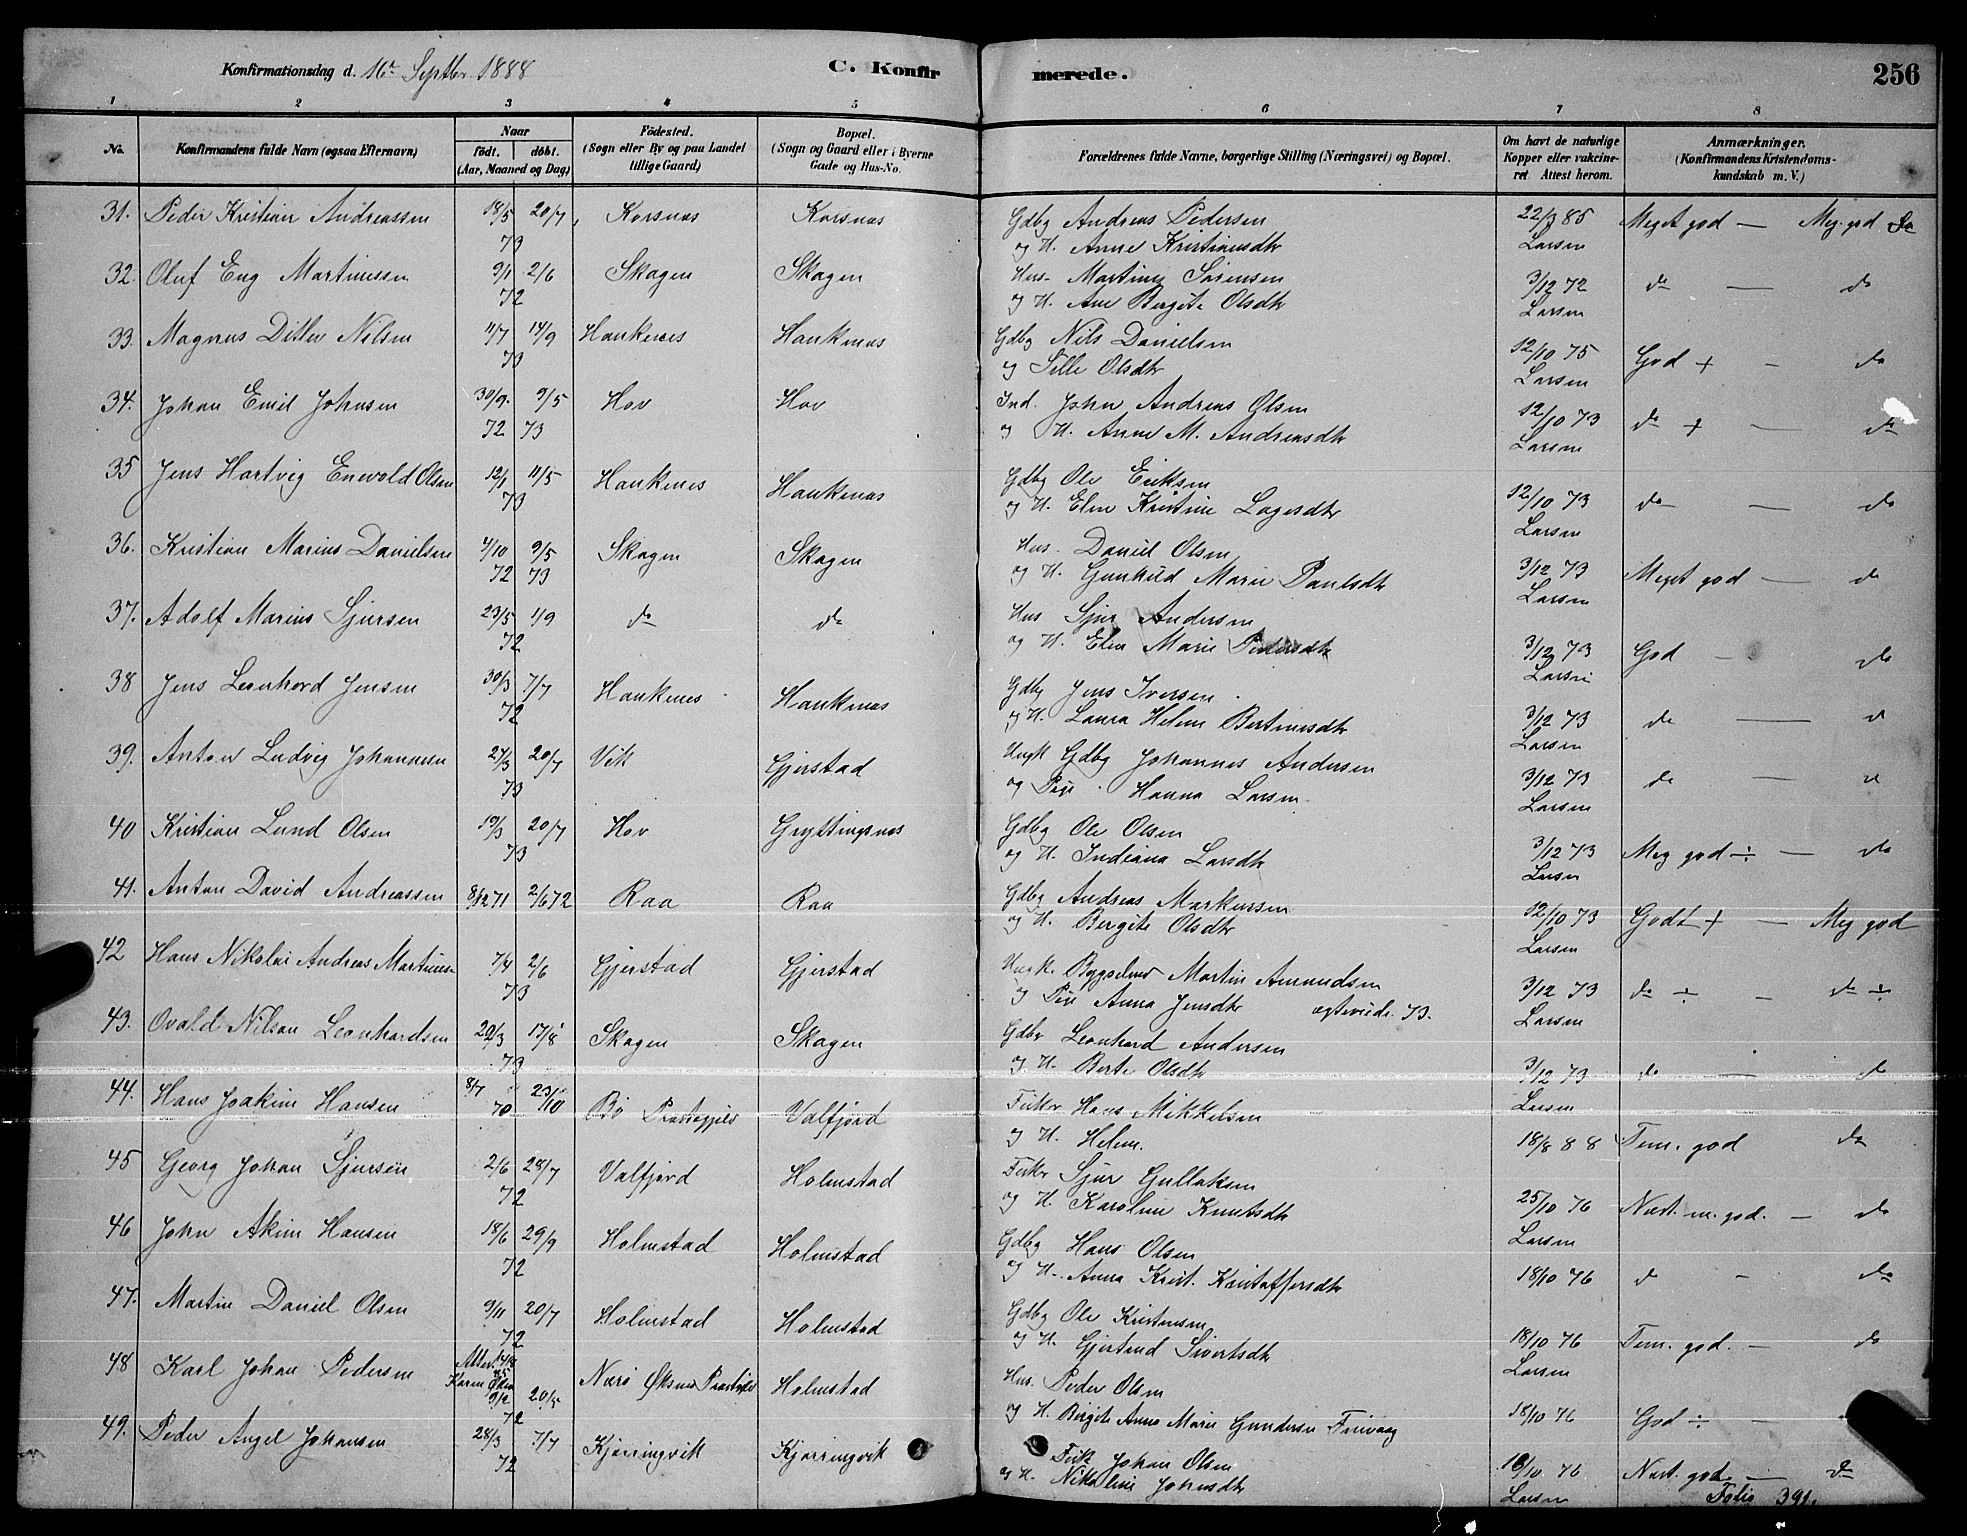 Konfirmationsdag d. 16de Septbr. 1888
C. Konfir
merede.
256
1 2 3 4 5 6 7 8
No. Konfirmandens fulde Navn (ogsaa Efternavn) Naar födt. döbt. (Aar, Maaned og Dag) Födested. (Sogn eller By og paa Landet tillige Gaard) Bopæl. (Sogn og Gaard eller i Byerne Gade og Hus-No. Forældrenes fulde Navne, borgerlige Stilling (Næringsvei) og Bopæl. Om havt de naturlige Kopper eller vakcineret Attest herom. Anmærkninger. (Konfirmandens Kristendomskundskab m. V.)
31. Peder Kristian Andreassen 18/5 20/7 73 Korsnæs Korsnæs Gdbg Andreas Pedersen 22/3 85 Meget god — Meg. god do
og H. Anne Kristiansdtr Larsen
32. Oluf Eng Martinussen 9/1 2/6 72 Skagen Skagen Hus. Martinus Sørensen 3/12 72 do — do
og H. Ane Bergite Olsdtr Larsen
33. Magnus Ditlev Nilsen 11/7 14/9 73 Haukenes Haukenæs Gdbg Nils Danielsen 12/10 75 God + - do
og Sille Olsdtr Larsen
34. Johan Emil Johnsen 30/9 9/5 72 73 Hov Hov Ind. John Andreas Olsen 12/10 73 do + — do
og H. Anne M. Andreasdtr Larsen
35 Jens Hartvig Enevold Olsen 12/1 11/5 73 Haukenes Haukenæs Gdbg Ole Eriksen 12/10 73 do — do
og H. Elen Kristine Lagesdtr Larsen
36. Kristian Marius Danielsen 4/10 9/5 72 73 Skagen Skagen Hus. Daniel Olsen 3/12 73 Meget god — do
og H. Gunhild Marie Paulsdtr Larsen
37. Adolf Marius Sjursen 23/5 1/9 72 do do Hus Sjur Andersen 3/12 73 God - do
og H. Elen Marie Pedersdtr Larsen
38 Jens Leonhard Jensen 30/3 7/7 72 Haukenes Haukenæs Gdbg Jens Iversen 3/12 73 do — d
og H. Laura Helene Bertinusdtr Larsen
39. Anton Ludvig Johannesen 27/3 20/7 73 Vik Gjerstad Ungk Gdbg Johannes Andersen 3/12 73 do —
og Pige Hanna Larsen Larsen
40 Kristian Lund Olsen 19/3 20/7 73 Hov Gryttingsnæs Gdbg Ole Olsen 3/12 73 Meg god ÷ — do
og H. Indiana Larsdtr Larsen
41. Anton David Andreassen 8/12 71 2/6 72 Raa Raa Gdbg Andreas Markussen 12/10 73 Godt + — Meg god
og H. Bergite Olsdtr Larsen
42 Hans Nikolai Andreas Martinus- 7/4 2/6 73 Gjerstad Gjerstad Ungk. Bygselmd Martin Amundsen 3/12 73 do ÷ — do ÷
og Pige Anna Jensdtr ægteviede 73. Larsen
43. Ovald Nilsen Leonhardsen 20/3 17/8 73 Skagen Skagen Gdbr Leonhard Andersen 3/12 73 do — do
og H. Berte Olsdtr Larsen
44. Hans Joakim Hansen 8/7 70 23/10 Bø Præstegjeld Valfjord Fisker Hans Mikkelsen 18/8 88 Tem. god do
og H. Helene
45 Georg Johan Sjursen 2/6 28/7 72 Valfjord Holmstad Fisker Sjur Gullaksen 25/10 76 Næst. m. god. — do
og H. Karoline Knutsdtr Larsen
46 John Akim Hansen 18/6 29/9 72 Holmstad Holmstad Gdbg Hans Olsen 18/10 76 d - do
og H. Anna Krist. Kristoffersdtr
47. Martin Daniel Olsen 9/11 20/7 72 Holmstad Holmstad Gdbg Ole Kristensen 18/10 76 Tem. god. — do
og H. Gjertrud Sivertsdtr Larsen
48 Karl Johan Pedersen 9/2 20/5 72 Øksnes Holmstad Hus. Peder Olsen 18/10 76 God ÷ —
og H. Birgite Anna Marie Gundersen
49. Peder Angel Johansen 28/3 7/7 72 Kjørringvik Kjørringvik Fisk Johan Olsen 18/10 76 Næst. god. — do
og H. Nikoline Johnsdtr Larsen
Folio 391.